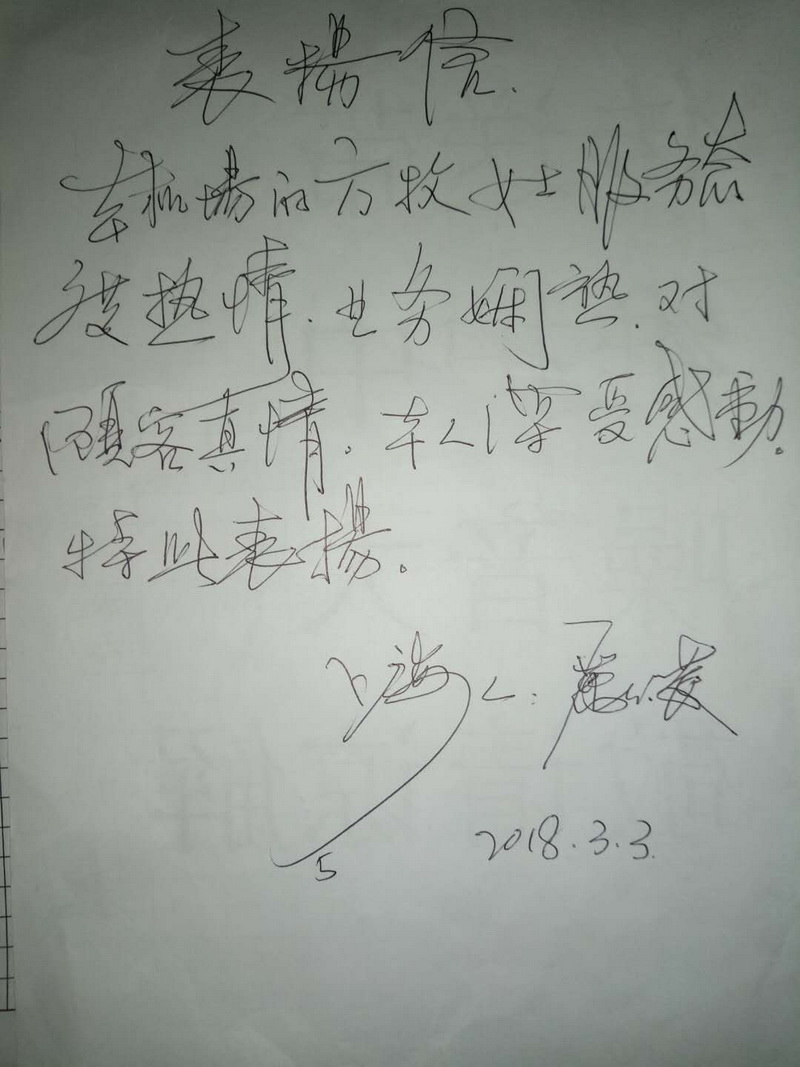 表揚信.
本机場的方牧女士服务态
度热情.业务娴熟.对
顧客真情.本人深受感動.
特此表揚。
上海人:
5
2018.3.3.